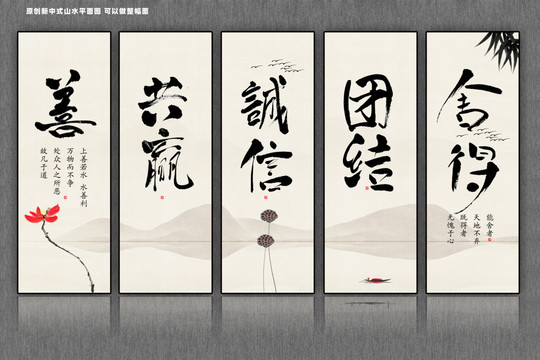 原创新中式山水平面图 可以做整幅图
善
上善若水 水善利
万物而不争
处众人之所恶
故几于道
共赢
誠信
团结
舍得
能舍者
天地不弃
既得者
无愧于心